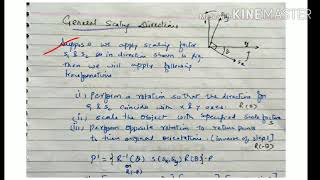 General Scaling Directions
Suppose we apply scaling factor
S1 & S2 in direction shown in fig.
then we will apply following
transformations
(i) Perform a rotation so that the direction for
S1 & S2 coincide with x & y axes. R(θ)
(ii) Scale the object with specified scale factors
(iii) Perform opposite rotation to return points
to their original orientations. (inverse of step 1)
R(-θ)
P' = { R⁻¹(θ) S(S1,S2) R(θ) } · P
or
R(-θ)
KINEMASTER